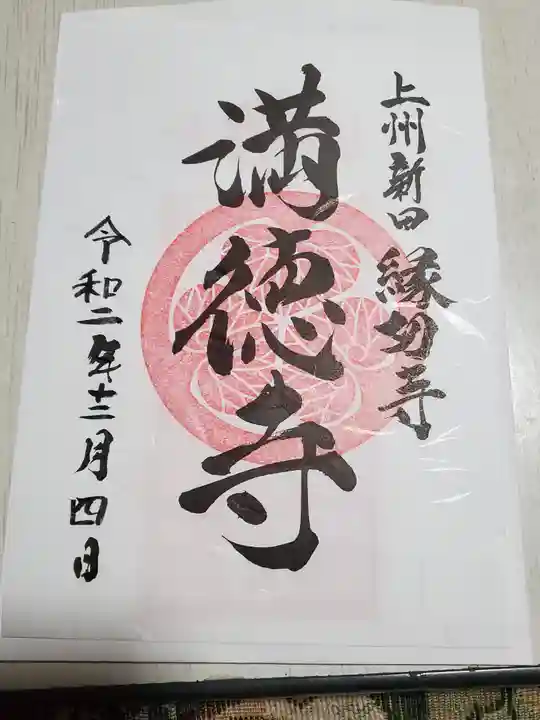 上州新田縁切寺
満徳寺
令和二年十二月四日